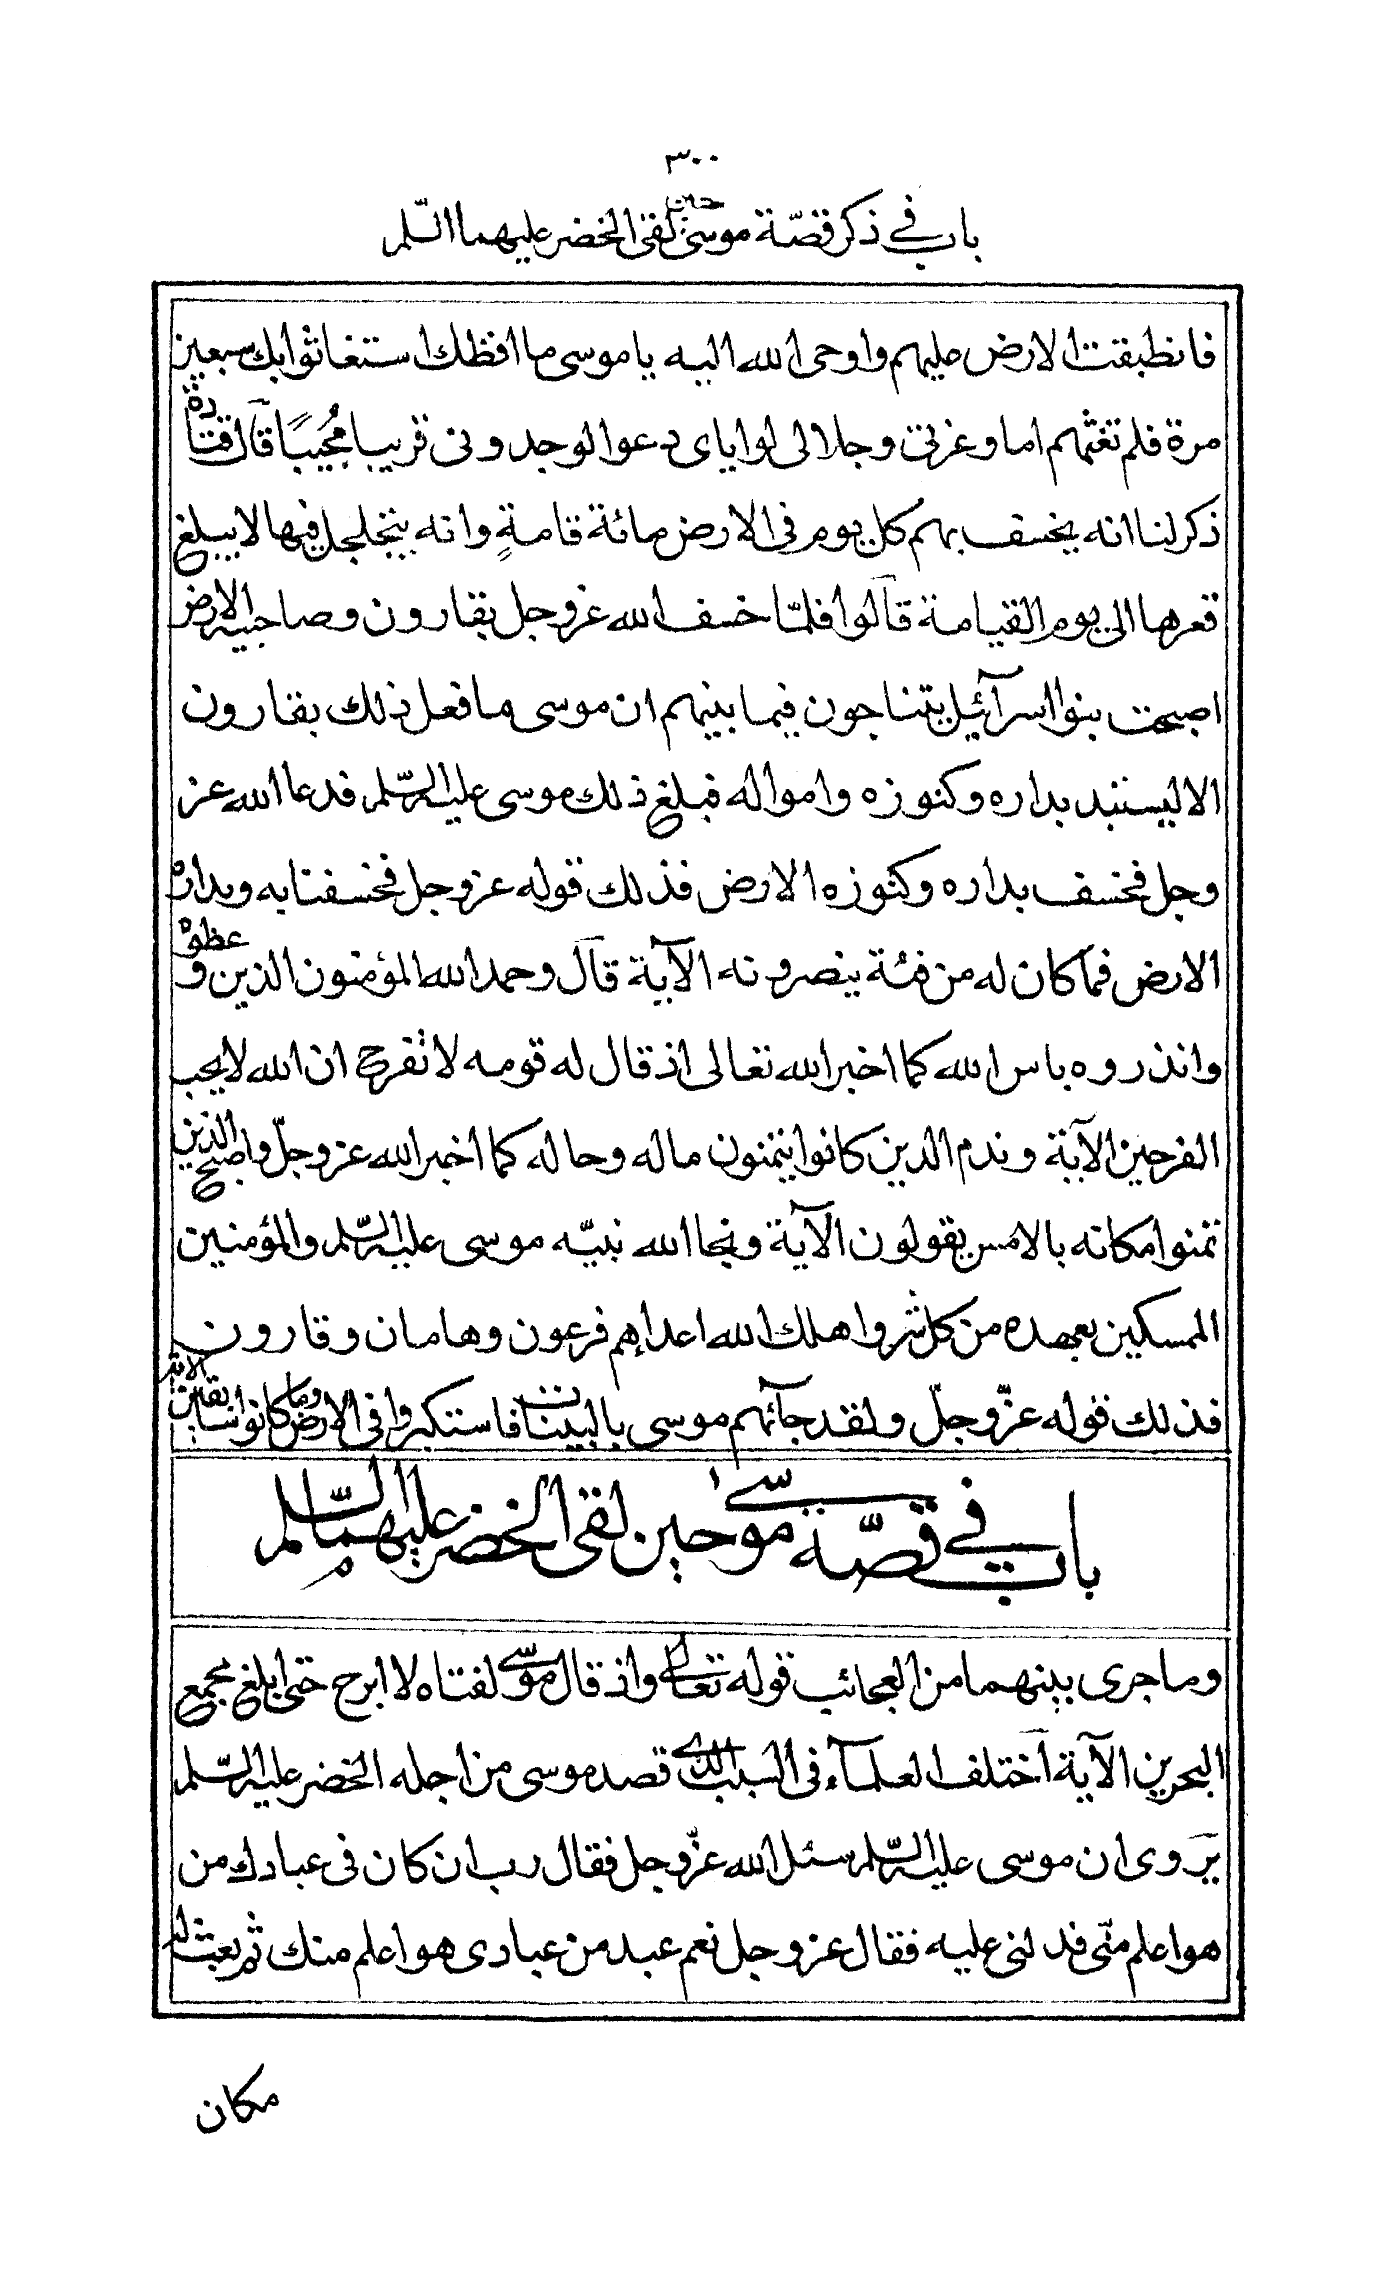 ٣٠٠
باب في ذكر قصّة موسى حين لقى الخضر عليهما السّلم
فانطبقت الارض عليهم واوحى الله اليه يا موسى ما افظك استغاثوا بك سبعين
مرة فلم تغثهم اما وعزتى وجلالى لو اياى دعوا لوجدونى قريبا مُجيبًا قال قتادة
ذكر لنا انه يخسف بهم كل يوم فى الارض مائة قامةٍ وانه يتجلجل فيها لا يبلغ
قعرها الى يوم القيامة قالوا فلمّا خسف الله عز وجل بقارون وصاحبيه الارض
اصبحت بنوا اسرآئيل يتناجون فيما بينهم ان موسى ما فعل ذلك بقارون
الا ليستبد بداره وكنوزه وامواله فبلغ ذلك موسى عليه السّلم فدعا الله عز
وجل فخسف بداره وكنوزه الارض فذلك قوله عز وجل فخسفنا به وبداره
الارض فما كان له من فئة ينصرونه الآية قال وحمد الله المؤمنون الذين وعظوه
وانذروه باس الله كما اخبر الله تعالى اذ قال له قومه لا تفرح ان الله لا يحب
الفرحين الآية وندم الذين كانوا يتمنون ماله وحاله كما اخبر الله عز وجلّ واصبح الذين
تمنوا مكانه بالامس يقولون الآية ونجا الله نبيّه موسى عليه السّلم والمؤمنين
المسكين بعهده من كل شر واهلك الله اعداءهم فرعون وهامان وقارون
فذلك قوله عزّ وجلّ ولقد جآئهم موسى بالبينات فاستكبروا فى الارض وما كانوا سابقين الآية
باب في قصّة موسى حين لقى الخضر عليهما السّلم
وما جرى بينهما من العجائب قوله تعالى واذ قال موسى لفتاه لا ابرح حتى ابلغ مجمع
البحرين الآية اختلف العلمآء فى السبب الذى قصد موسى من اجله الخضر عليه السّلم
يروى ان موسى عليه السّلم سئل الله عزّ وجل فقال رب ان كان فى عبادك من
هو اعلم منّى فدلنى عليه فقال عز وجل نعم عبد من عبادى هو اعلم منك ثم بعث له
مكان